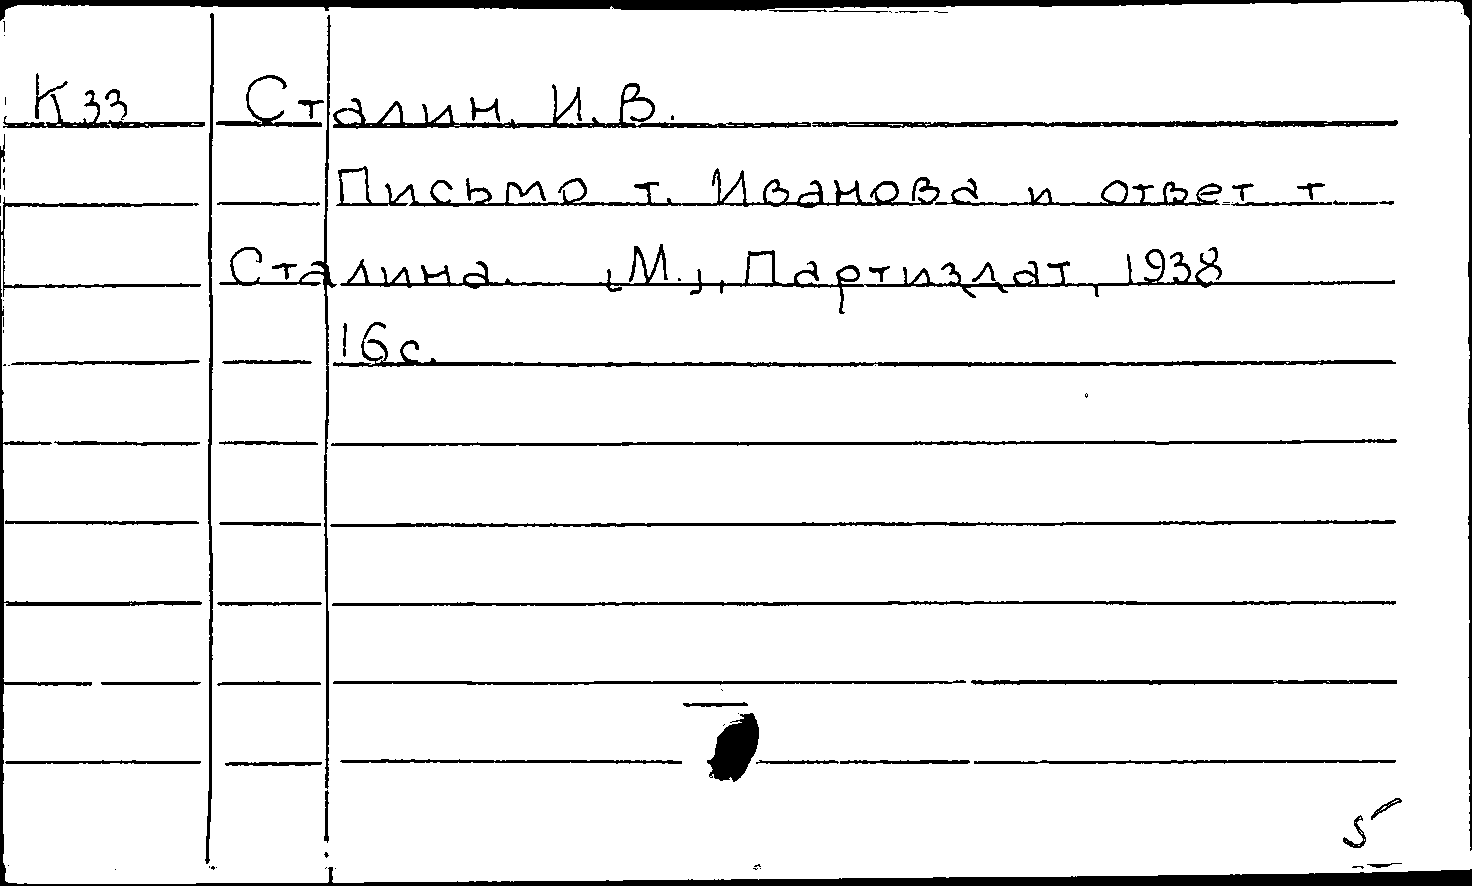 К33 Сталин, И.В.
Письмо т. Иванова и ответ т
Сталина. [М.], Партиздат, 1938
16с.
5